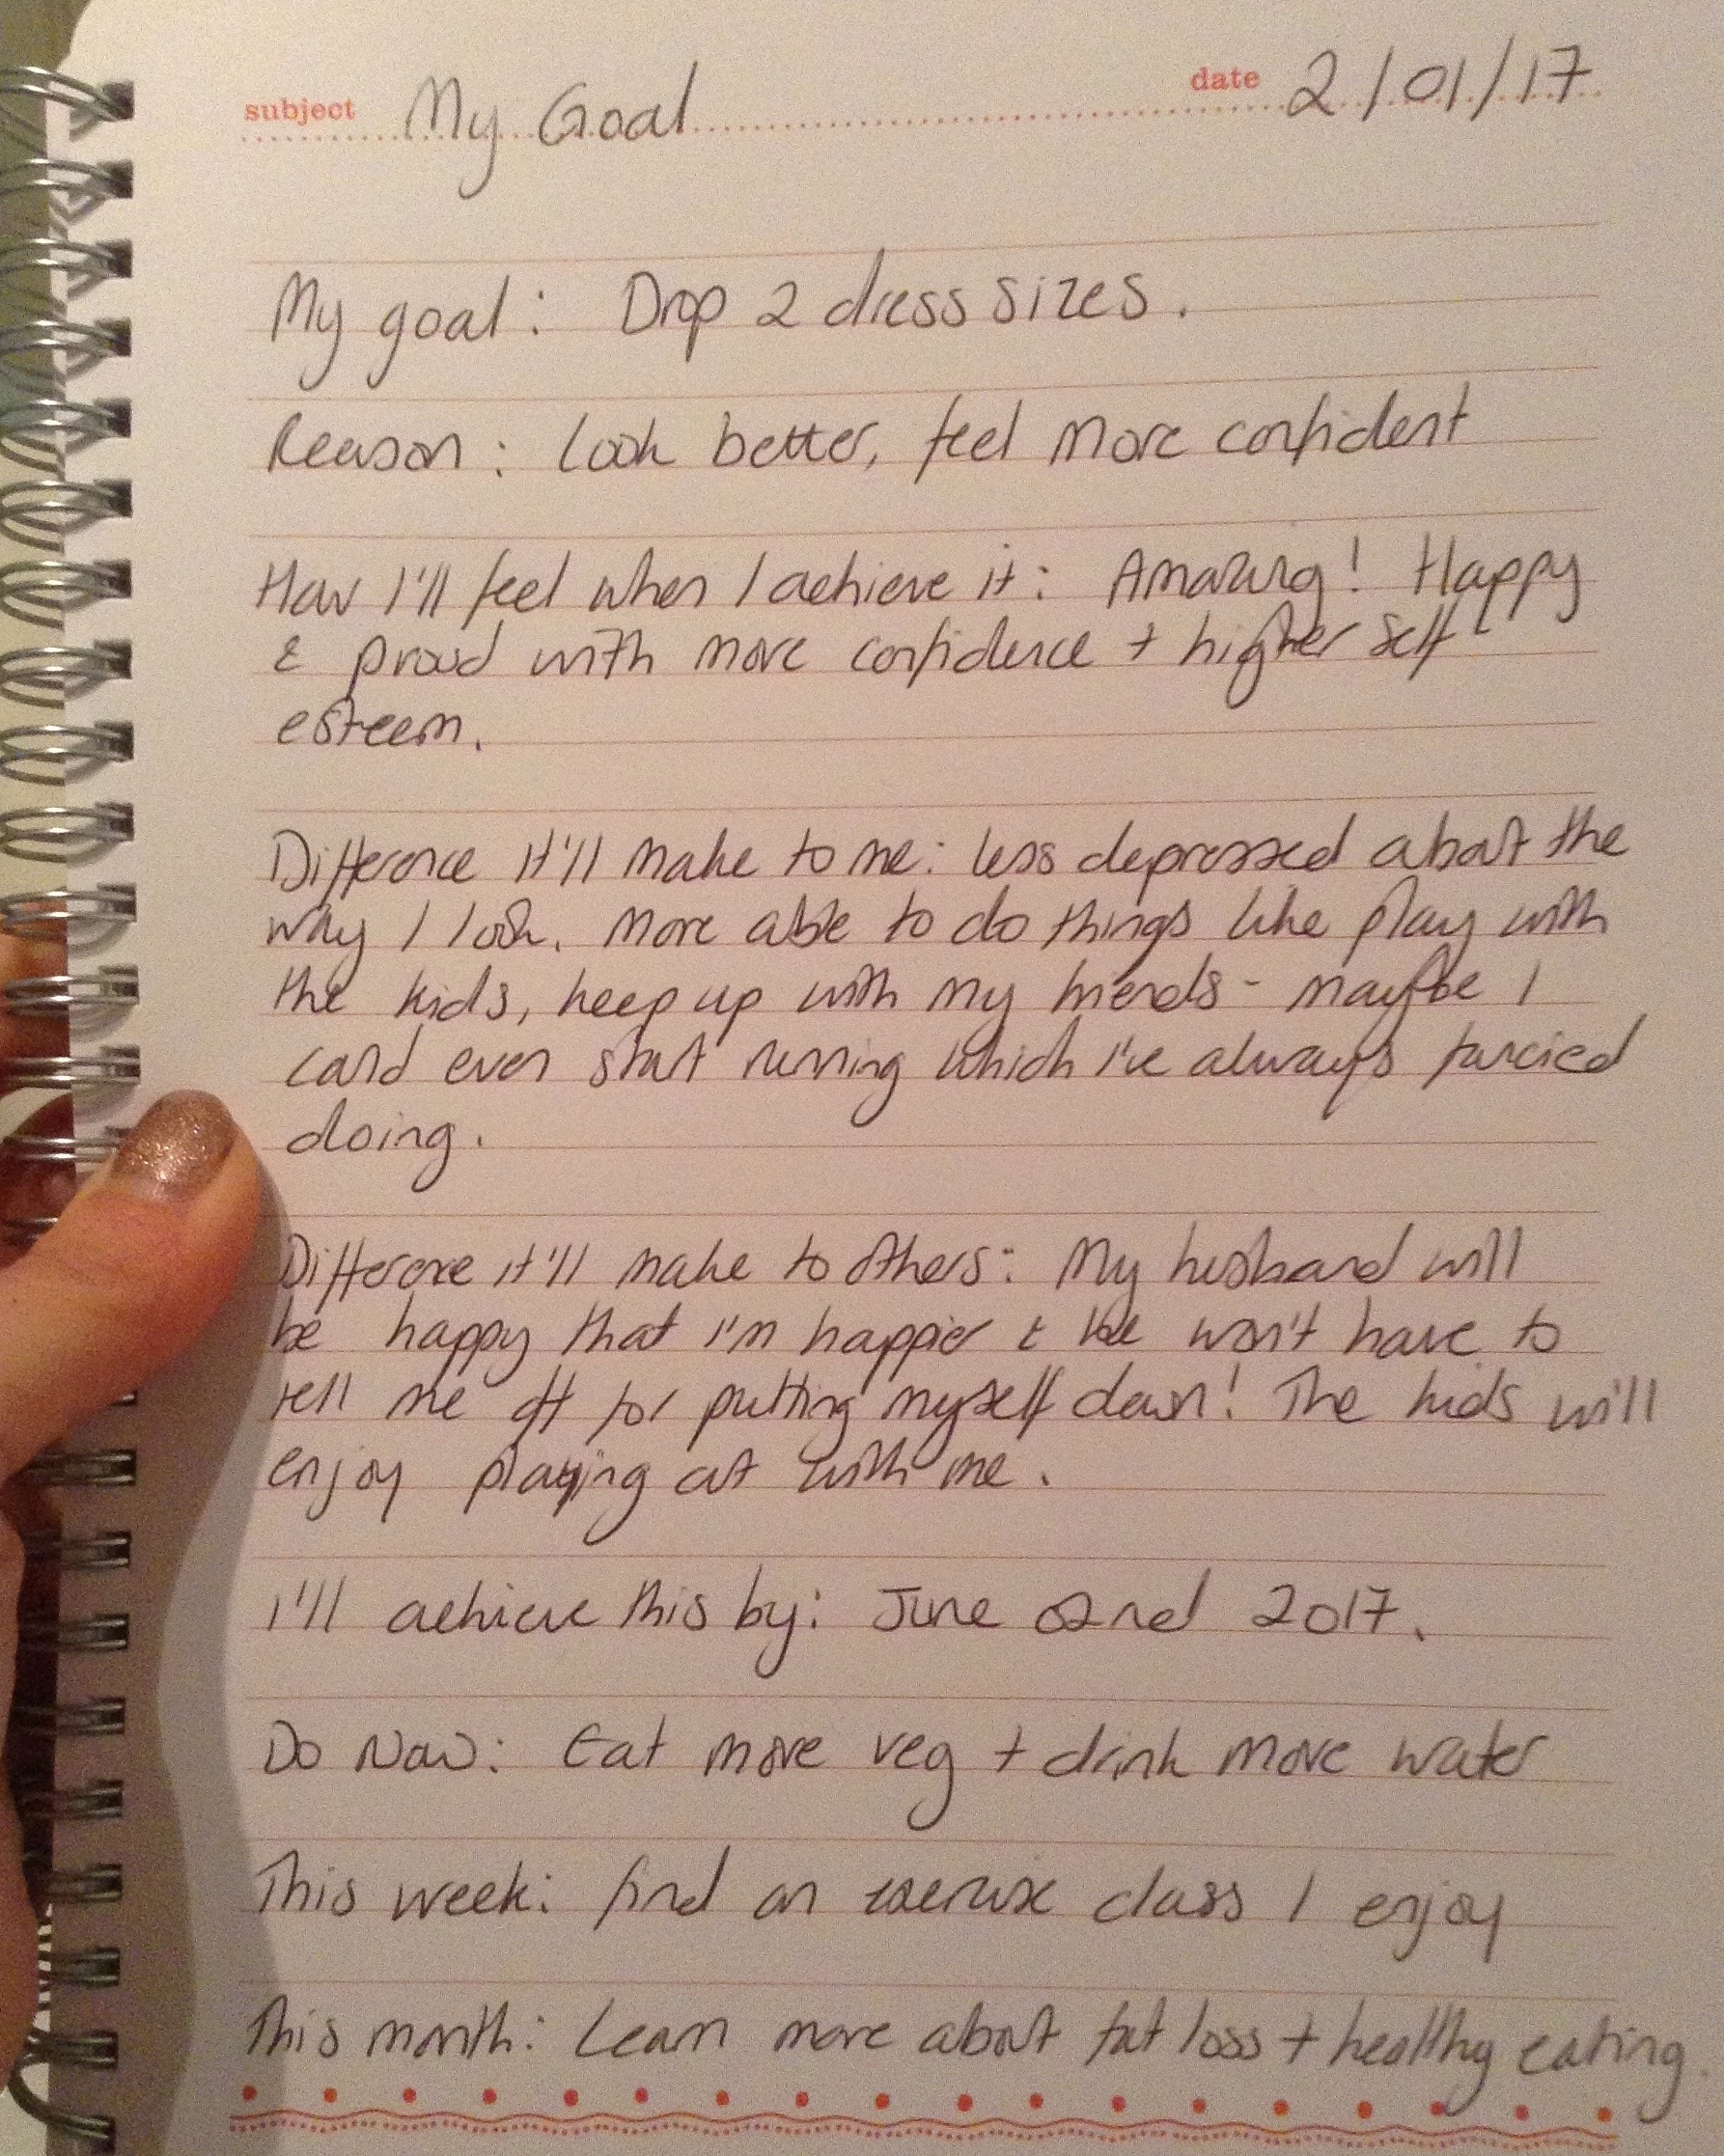 subject My Goal date 2/01/17
My goal: Drop 2 dress sizes.
Reason: look better, feel more confident
How I'll feel when I achieve it: Amazing! Happy
& proud with more confidence + higher self
esteem.
Difference it'll make to me: less depressed about the
way I look. More able to do things like play with
the kids, keep up with my friends - maybe I
could even start running which I've always fancied
doing.
Difference it'll make to others: My husband will
be happy that I'm happier & he won't have to
tell me off for putting myself down! The kids will
enjoy playing out with me.
I'll achieve this by: June 02nd 2017.
Do Now: Eat more veg + drink more water
This week: find an exercise class I enjoy
This month: Learn more about fat loss + healthy eating.